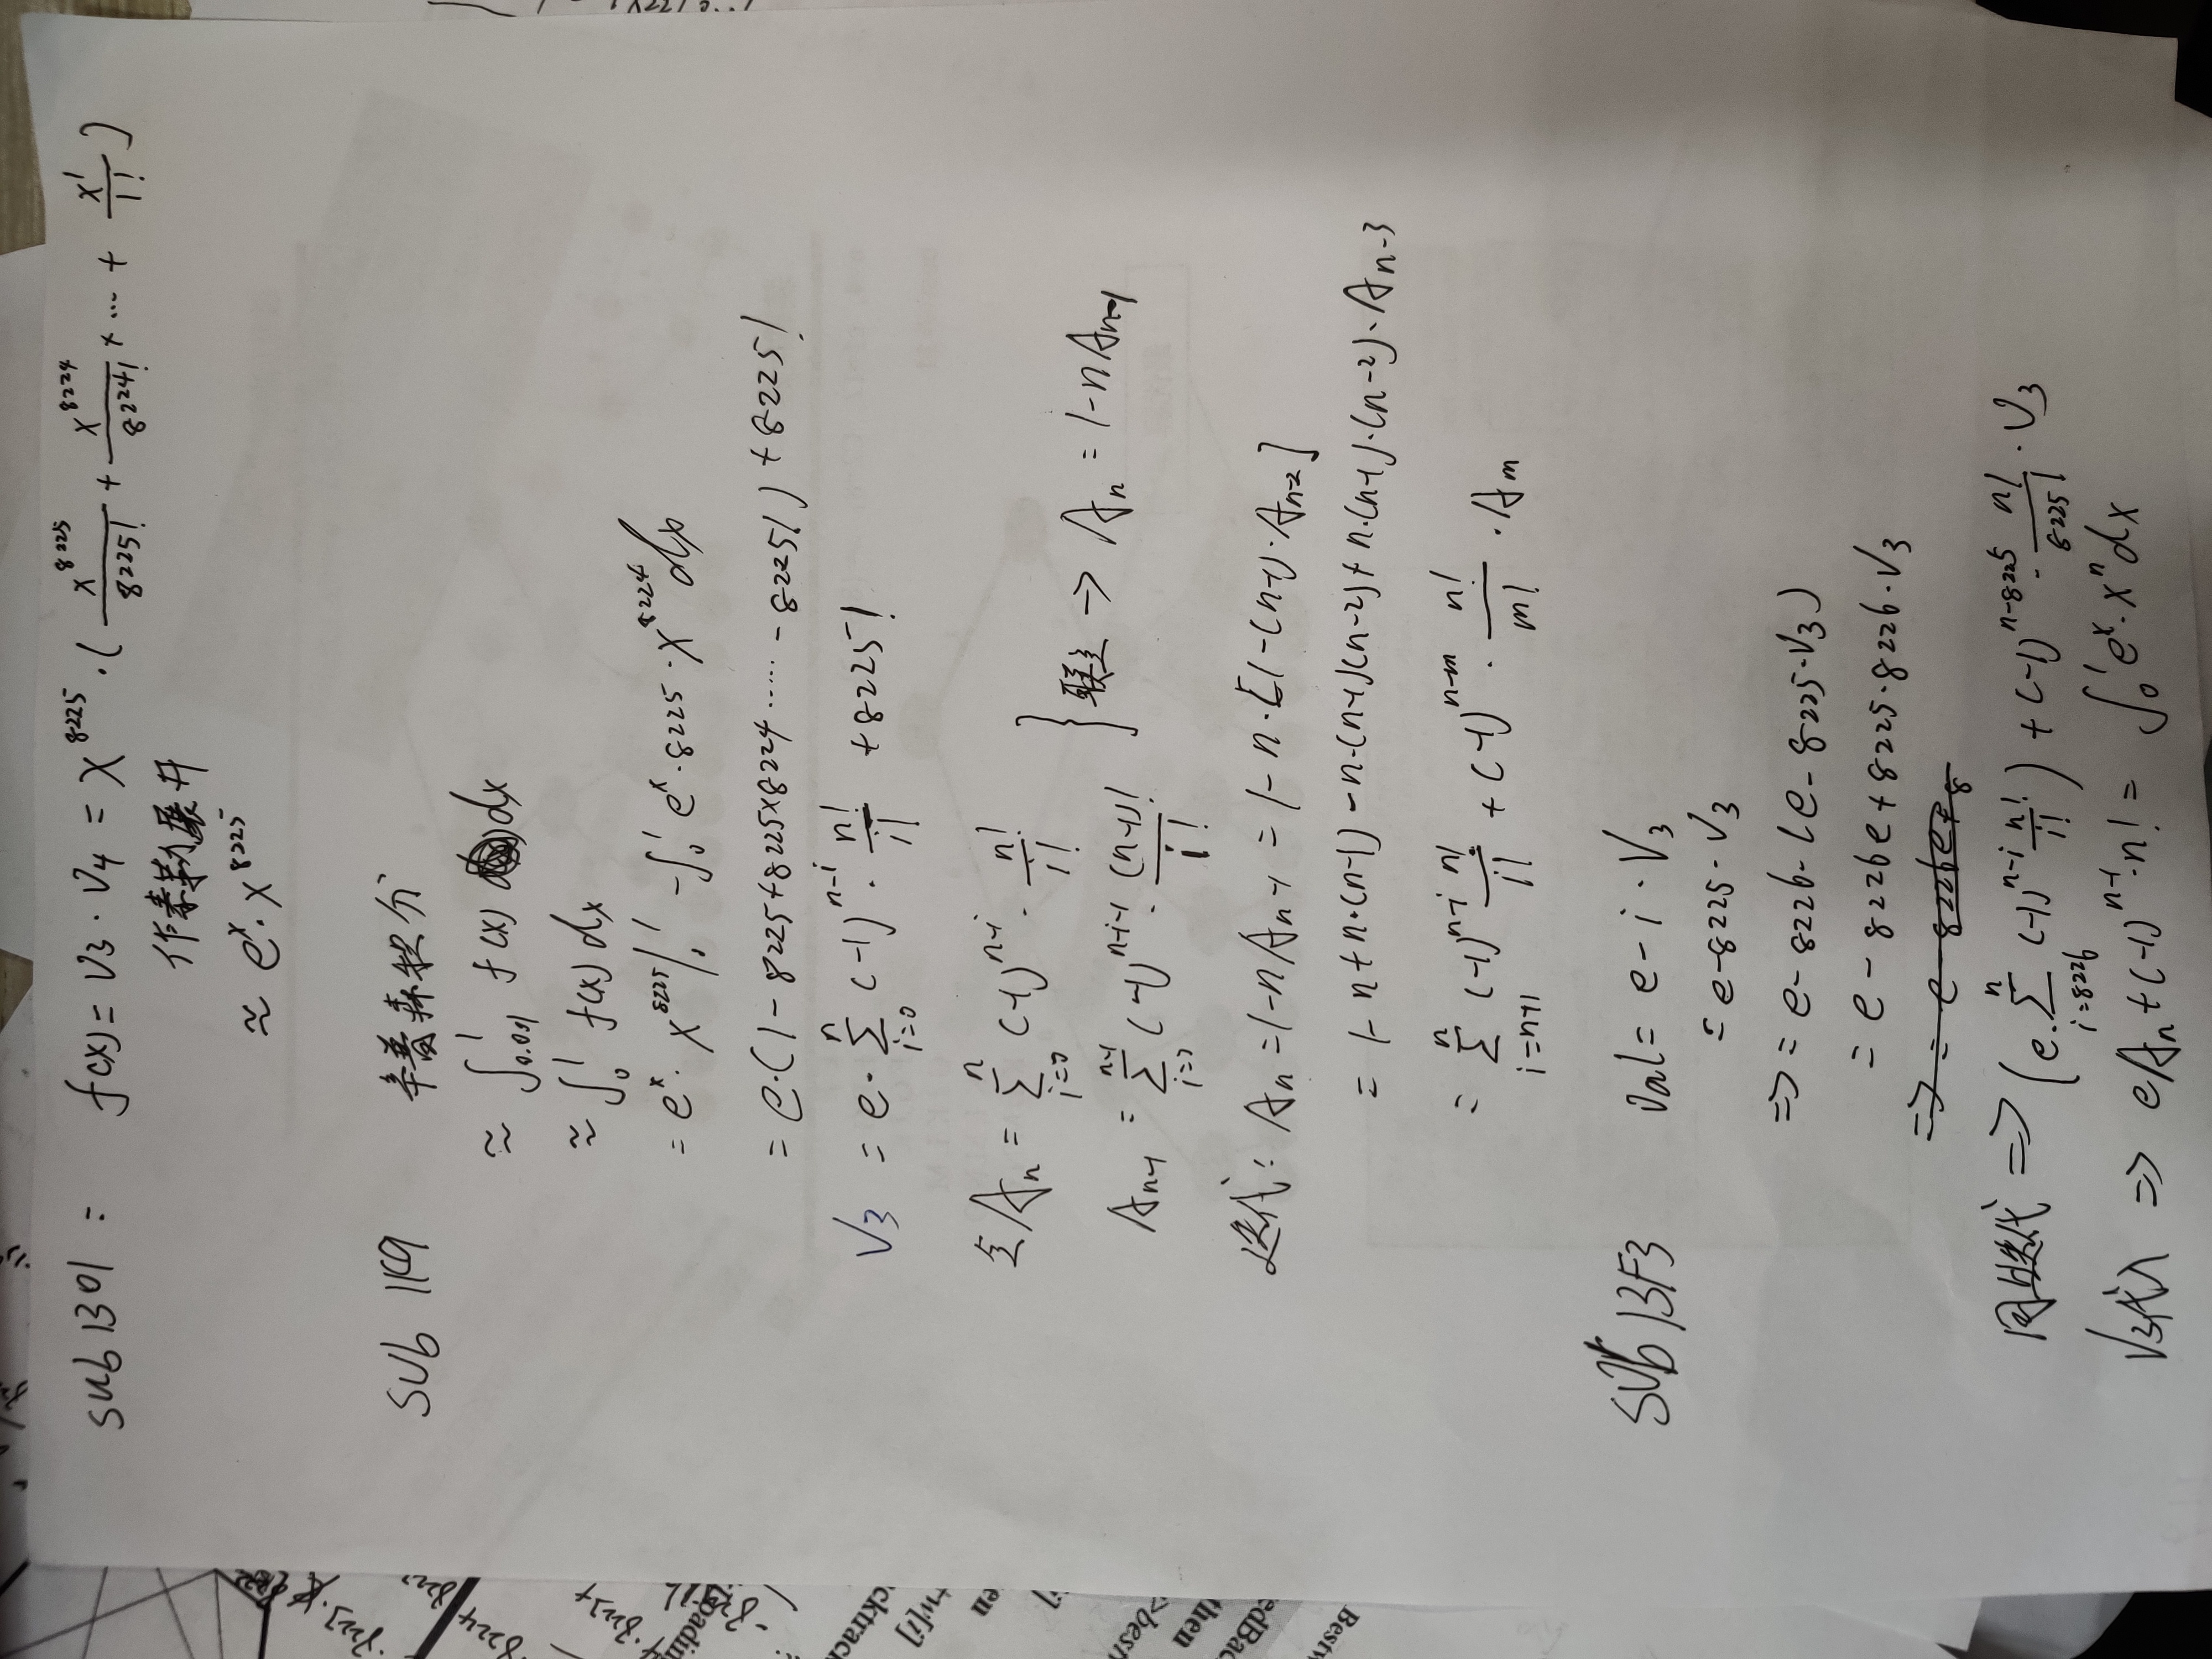 sub1301 : f(x) = V3 · V4 = x^8225 · ( x^8225/8225! + x^8224/8224! + ... + x^1/1! )
作泰勒展开
≈ e^x · x^8225
sub 119 辛普森积分
≈ ∫_0.001^1 f(x) dx
≈ ∫_0^1 f(x) dx
= e^x · x^8225 |_0^1 - ∫_0^1 e^x · 8225 · x^8224 dx
= e · (1 - 8225 + 8225×8224 ...... - 8225!) + 8225!
V3 = e · Σ_{i=0}^n (-1)^{n-i} · n!/i! + 8225!
令 An = Σ_{i=0}^n (-1)^{n-i} · n!/i!
A_{n-1} = Σ_{i=0}^{n-1} (-1)^{n-i-1} · (n-1)!/i!
} 联立 → An = 1 - nA_{n-1}
迭代: An = 1 - nA_{n-1} = 1 - n · [1 - (n-1) · A_{n-2}]
= 1 - n + n·(n-1) - n·(n-1)(n-2) + n·(n-1)·(n-2)·A_{n-3}
= Σ_{i=n+1}^n (-1)^{n-i} n!/i! + (-1)^{n-m} · n!/m! · Am
sub 13F3 Val = e - i · V3
= e - 8225 · V3
=> = e - 8226 · (e - 8225 · V3)
= e - 8226e + 8225·8226 · V3
=> = e - 8226e + 8
同上迭代 => (e · Σ_{i=8226}^n (-1)^{n-i} n!/i! ) + (-1)^{n-8225} · n!/8225! · V3
V3代入 => eAn + (-1)^{n-1} · n! = ∫_0^1 e^x · x^n dx